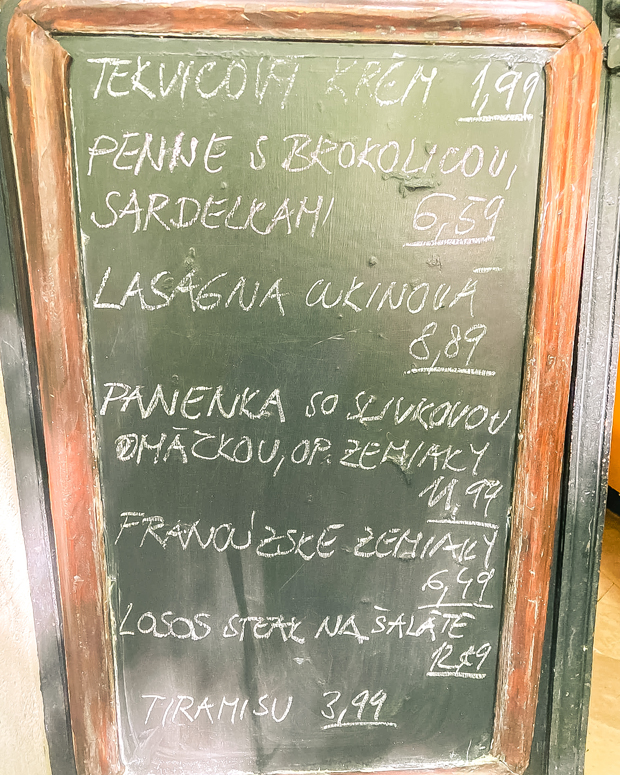 TEKVICOVÝ KRÉM 1,99
PENNE S BROKOLICOU,
SARDELKAMI 6,59
LASAGNA CUKINOVÁ
8,89
PANENKA SO SLIVKOVOU
OMÁČKOU, OP. ZEMIAKY
11,99
FRANCÚZSKE ZEMIAKY
6,49
LOSOS STEAK NA ŠALÁTE
TIRAMISU 3,99